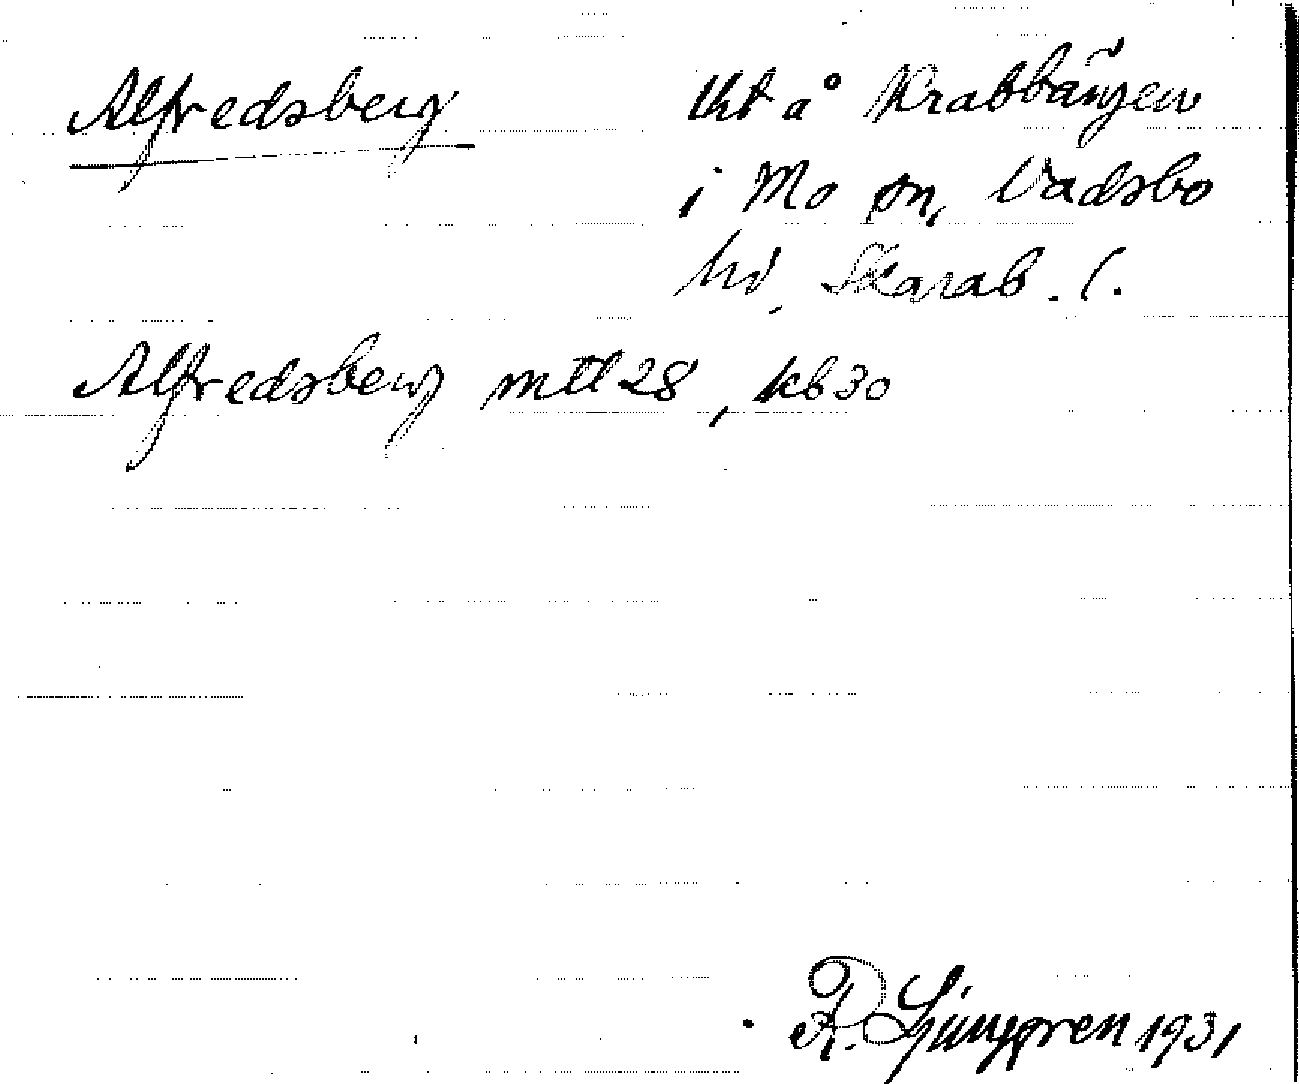 Alfredsberg
tht å Krabbängen
i Mo sn, Vadsbo
hd, Skarab. l.
Alfredsberg mtl 28, kb 30
R. Ljunggren 1931